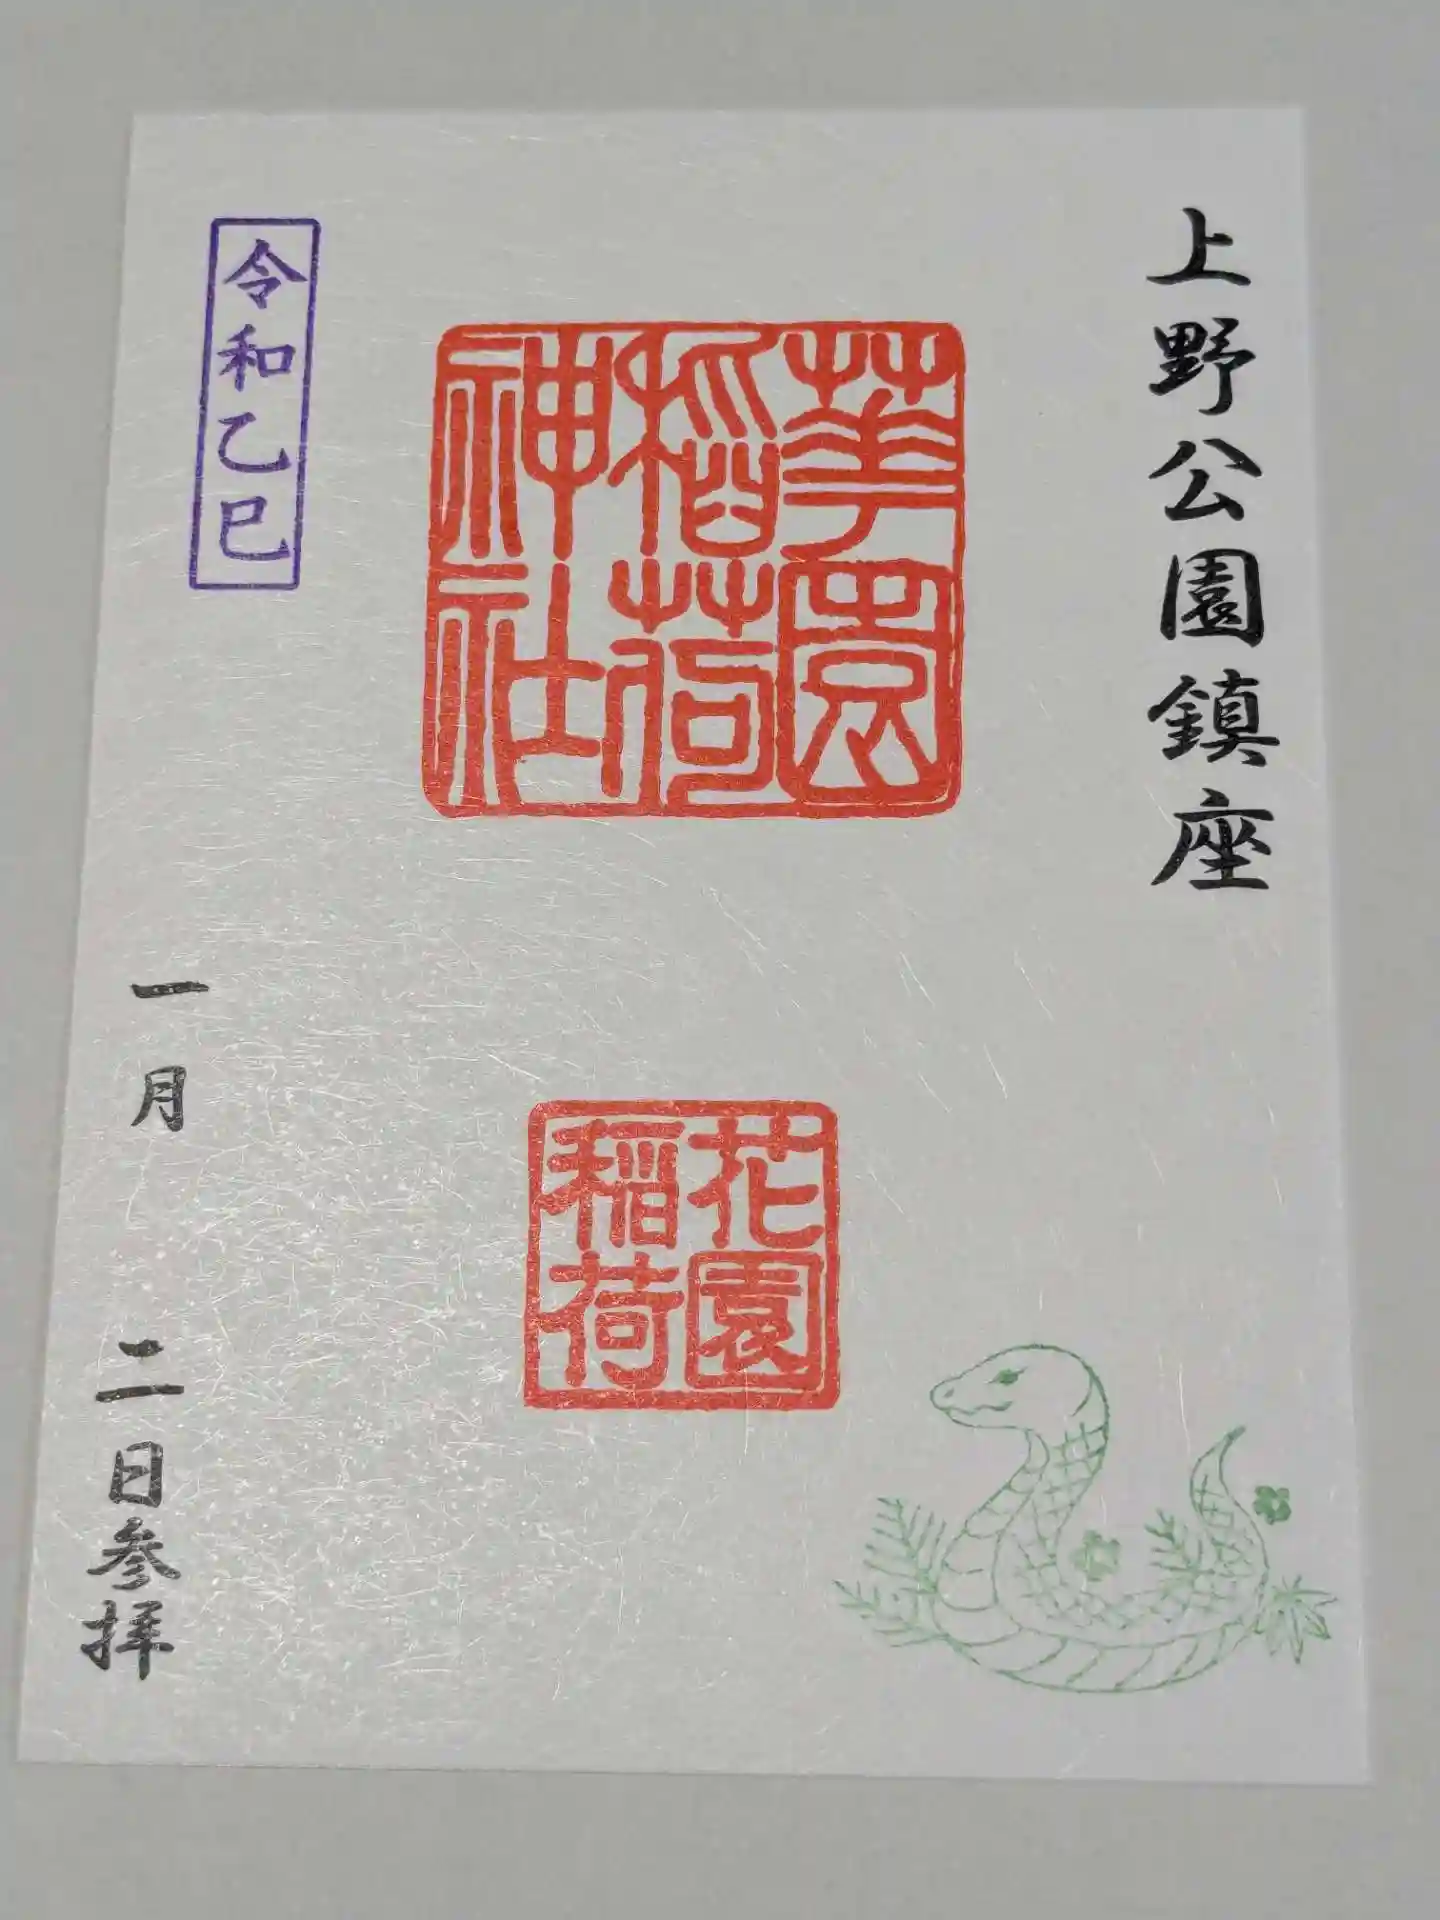 上野公園鎮座
華園
稲荷
神社
花園
稲荷
令和乙巳
一月
二日参拝